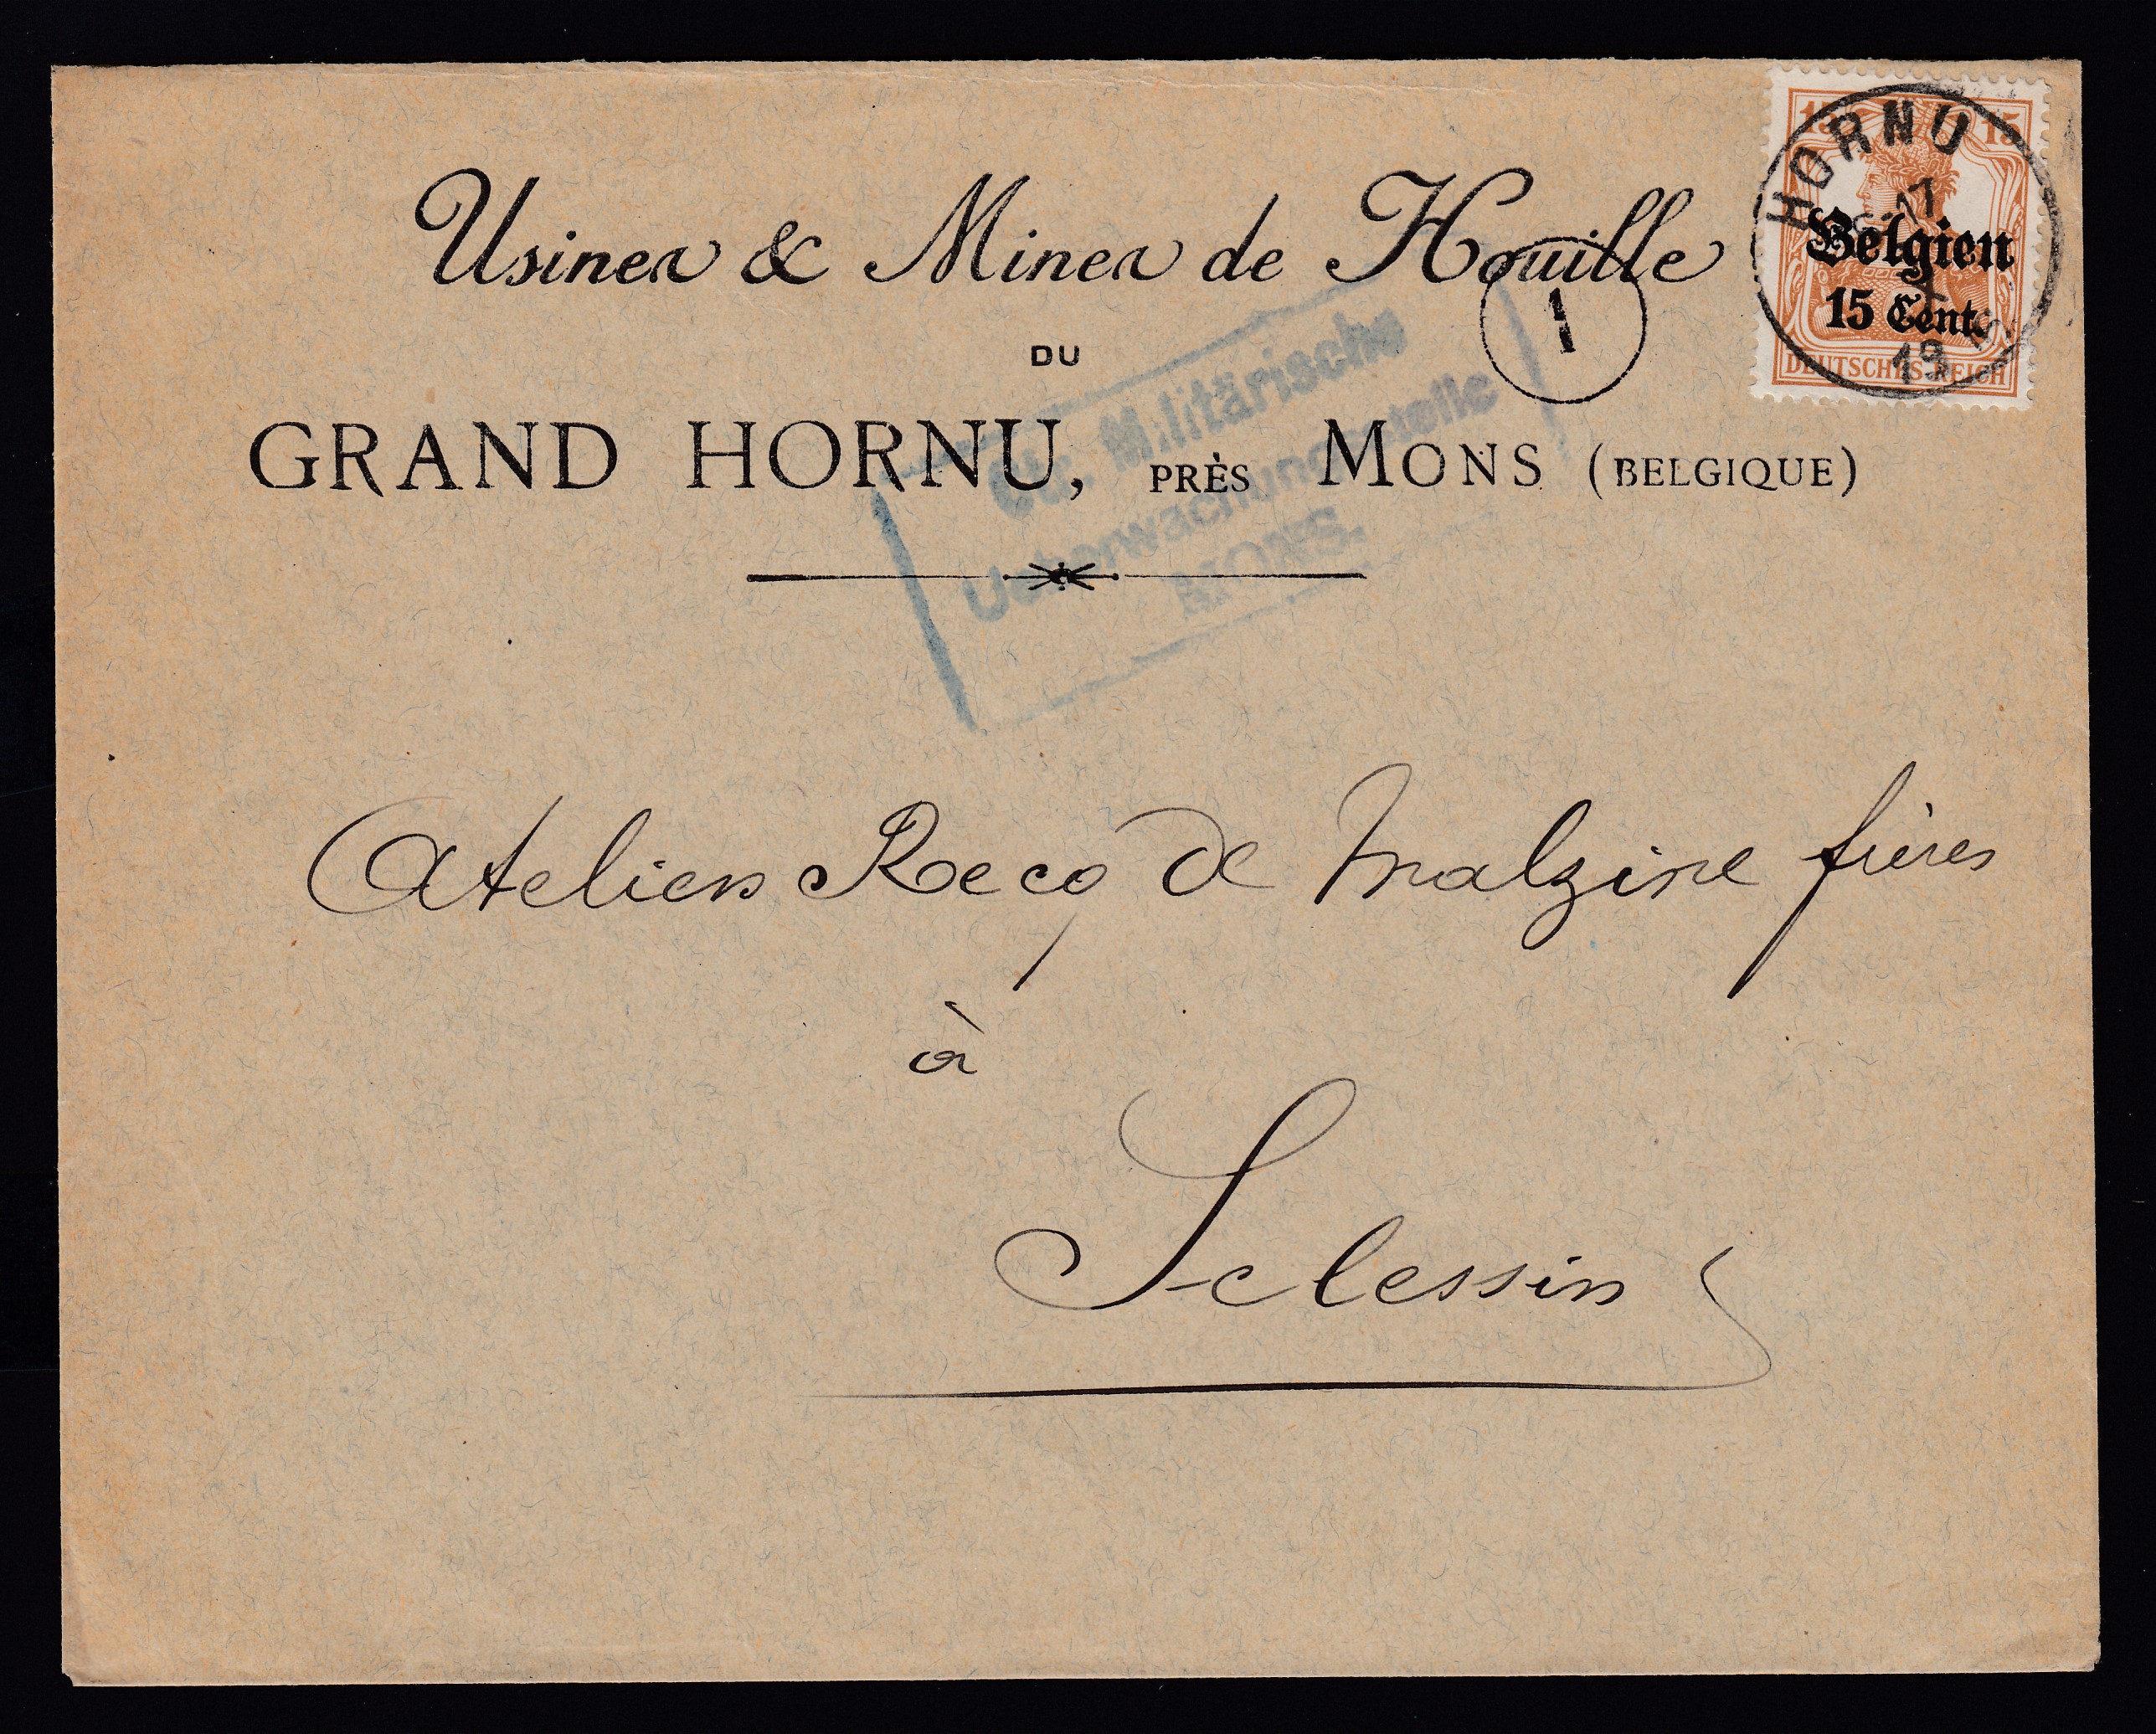 Usines & Mines de Houille
DU
GRAND HORNU, PRÈS MONS (BELGIQUE)
15 15
Belgien
15 Cent.
DEUTSCHES REICH
HORNU
1
Militärische
Ueberwachungsstelle
MONS.
Ateliers de Malzine frères
à
Sclessin